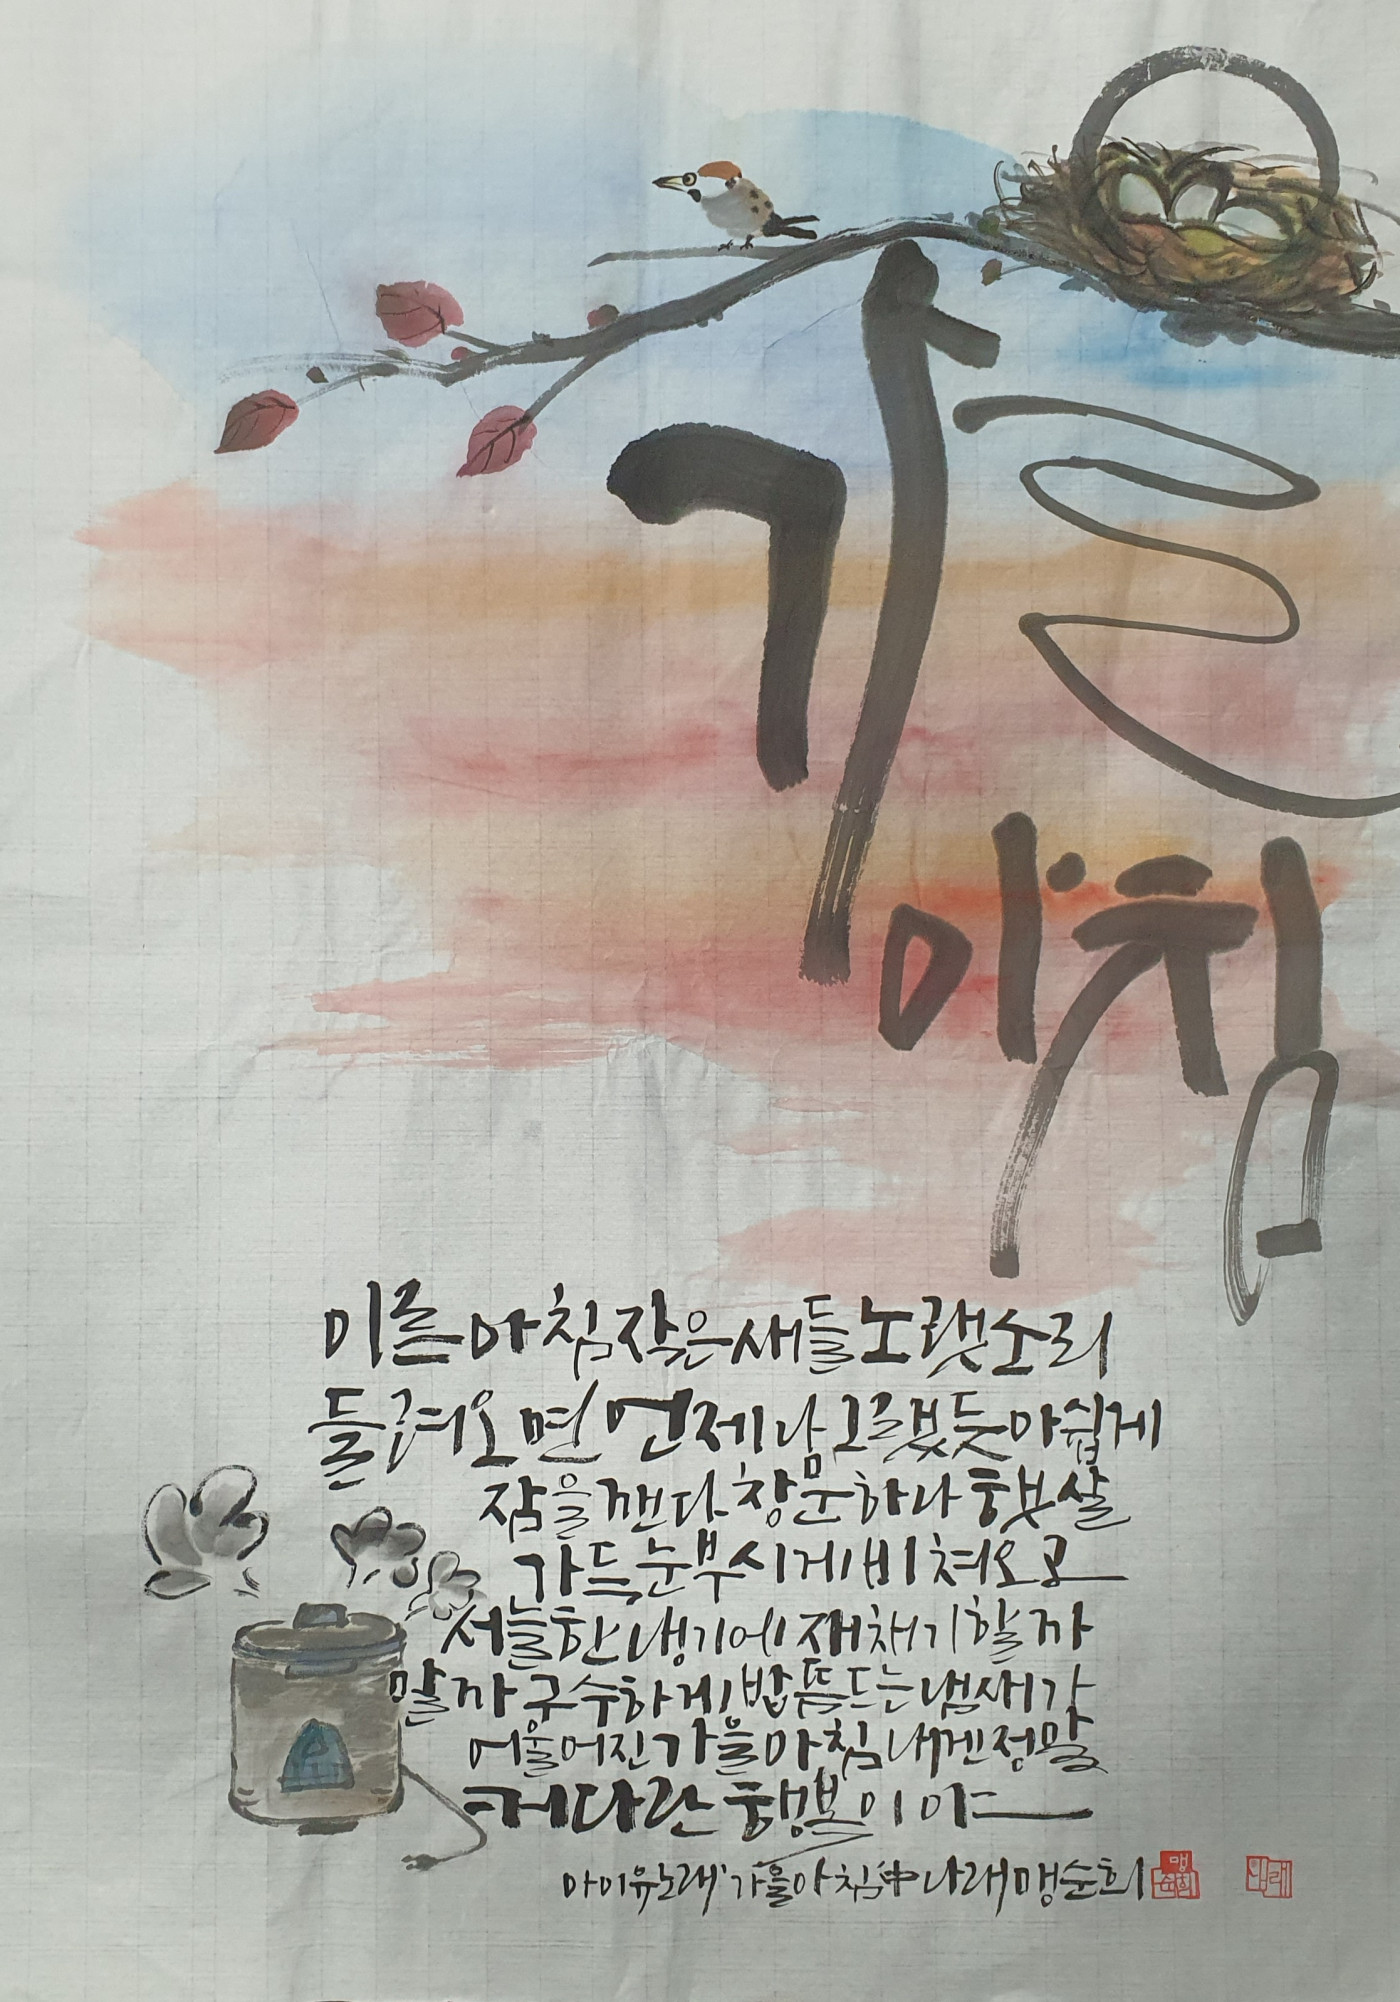 가을
아침
이른 아침 작은새들 노랫소리
들려오면 언제나 그랬듯 아쉽게
잠을 깬다 창문 하나 햇살
가득 눈부시게 비쳐오고
서늘한 냉기에 재채기할까
말까 구수하게 밥 뜸드는 냄새가
어울어진 가을 아침 내겐 정말
커다란 행복이야
아이유 노래 '가을아침' 中 나래 맹순희
맹순희
나래